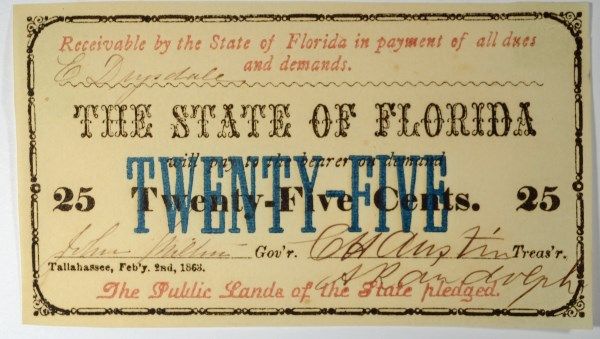 Receivable by the State of Florida in payment of all dues
and demands.
C Drysdale
THE STATE OF FLORIDA
will pay to the bearer on demand
TWENTY-FIVE
25 Twenty-Five Cents. 25
John Gov'r. C H Austin Treas'r.
Tallahassee, Feb'y. 2nd, 1863.
A Randolph
The Public Lands of the State pledged.